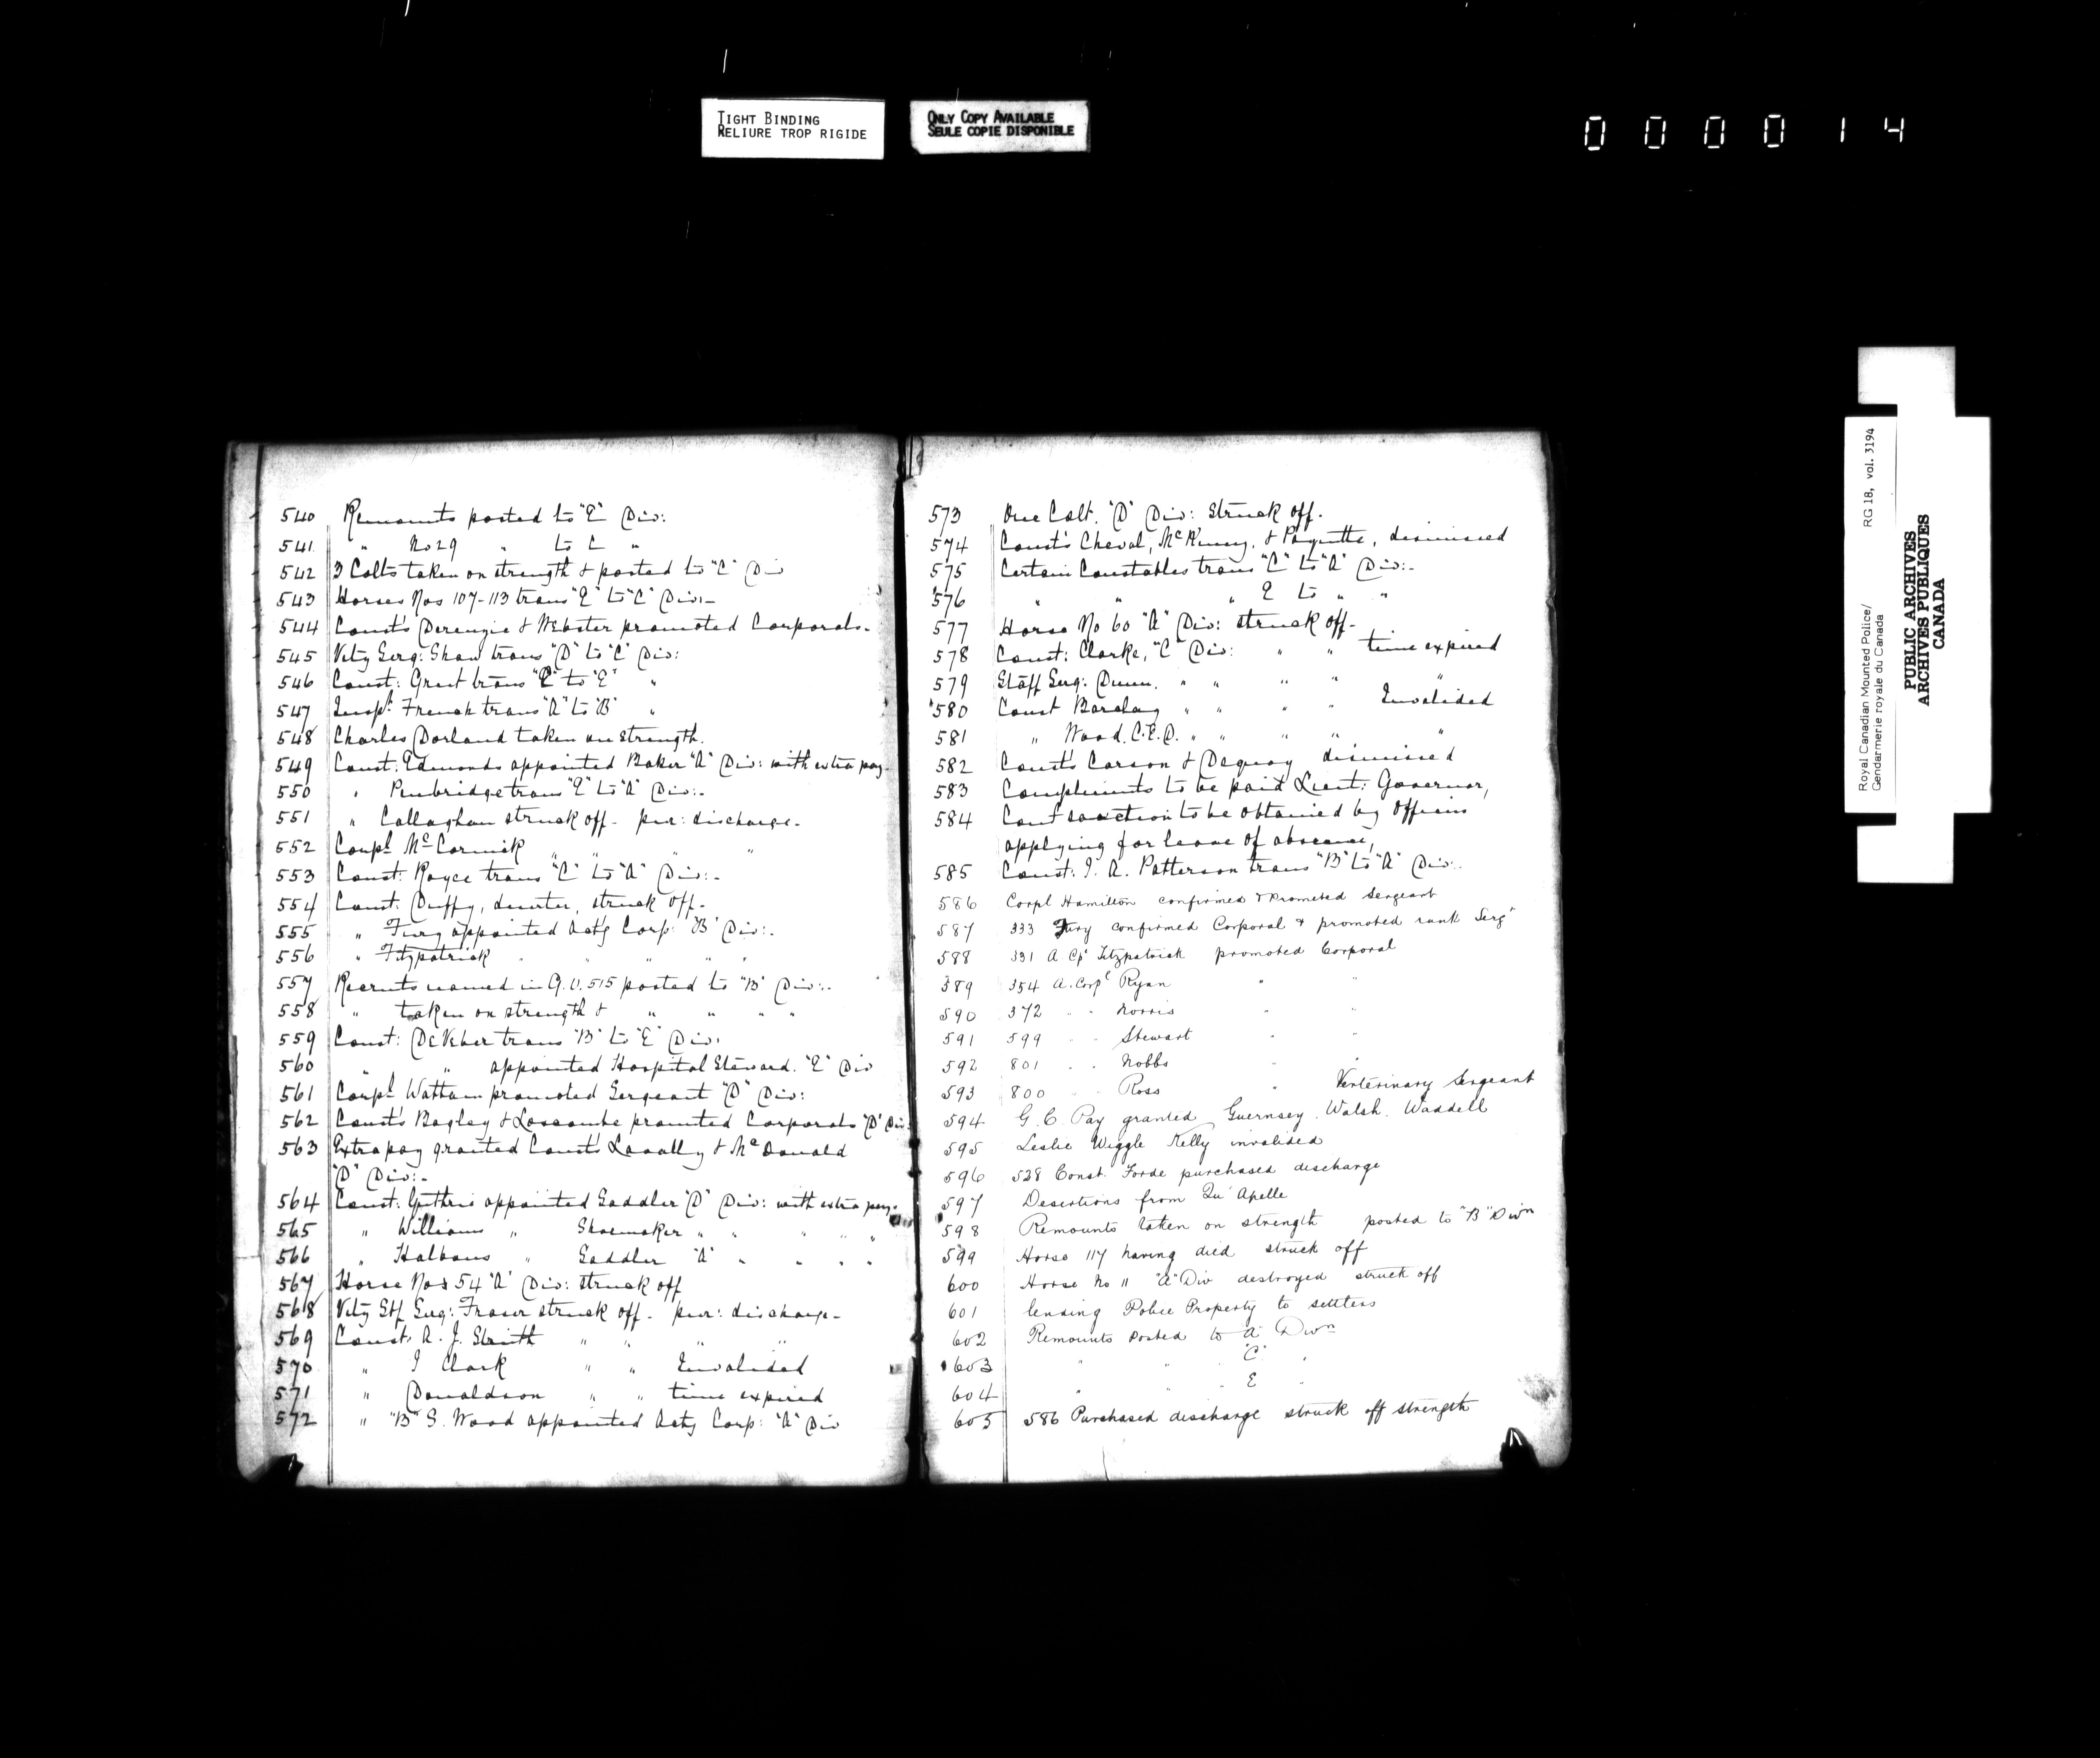 TIGHT BINDING
RELIURE TROP RIGIDE
ONLY COPY AVAILABLE
SEULE COPIE DISPONIBLE
0 0 0 0 1 4
540 Remounts posted to "E" Div:
541 " No 29 " to C "
542 3 Colts taken on strength & posted to "C" Div
543 Horses Nos 107-113 trans "E" to "C" Div:-
544 Const's Derenzie & Webster promoted Corporals.
545 Vety Serg: Shaw trans "D" to "C" Div:
546 Const: Grant trans "C" to "E" "
547 Inspr French trans "A" to "B" "
548 Charles Dorland taken on strength.
549 Const: Edmonds appointed Baker "A" Div: with extra pay.
550 " Penbridge trans "E" to "A" Div:-
551 " Callaghan struck off - pur: discharge.
552 Corpl McCormick " " " "
553 Const: Royce trans "C" to "A" Div:-
554 Const: Duffy, deserter, struck off.
555 " Fury appointed Act'g Corp: "B" Div:.
556 " Fitzpatrick " " " "
557 Recruits named in G.O. 515 posted to "B" Div:.
558 " taken on strength & " " " "
559 Const: DeVeber trans "B" to "E" Div.
560 " " appointed Hospital Steward. "E" Div
561 Corpl Wattam promoted Sergeant "D" Div:
562 Const's Bagley & Loscombe promoted Corporals "D" Div:
563 Extra pay granted Const's Lavally & McDonald
"D" Div:-
564 Const: Guthrie appointed Saddler "D" Div: with extra pay.
565 " Williams " Shoemaker " " " " "
566 " Halbaus " Saddler "A" " " " "
567 Horse No 54 "A" Div: struck off
568 Vety Stf Serg: Fraser struck off. pur: discharge -
569 Const: A. J. Smith " " " "
570 " J Clark " " Invalided
571 " Donaldson " " time expired
572 " "B" S. Wood appointed Actg Corp: "A" Div
573 One Colt. "D" Div: Struck off.
574 Const's Cheval, McKinney, & Payette, dismissed
575 Certain Constables trans "C" to "A" Div:-
576 " " " E to " "
577 Horse No 60 "A" Div: struck off-
578 Const: Clarke, "C" Div: " " time expired
579 Staff Serg: Dunn. " " " " "
580 Const Barclay " " " " Invalided
581 " Wood. C.E.D. " " " " "
582 Const's Carson & Deguay dismissed
583 Compliments to be paid Lieut: Governor,
584 Cont sanction to be obtained by Officers
applying for leave of absence,
585 Const: J. A. Patterson trans "B" to "A" Div:.
586 Corpl Hamilton confirmed & Promoted Sergeant
587 333 Fury confirmed Corporal & promoted rank Sergt
588 331 A Cpl Fitzpatrick promoted Corporal
389 354 A. Corpl Ryan " "
590 372 " " Norris " "
591 599 " " Stewart " "
592 801 " " Nobbs " "
593 800 " " Ross " Venterinary Sergeant
594 G. C Pay granted Guernsey. Walsh. Waddell
595 Leslie Wiggle Kelly invalided
596 528 Const. Forde purchased discharge
597 Desertions from Qu'Apelle
598 Remounts taken on strength posted to "B" Divn
599 Horse 117 having died struck off
600 Horse No 11 "A" Div destroyed struck off
601 lending Police Property to settlers
602 Remounts Posted to "A" Divn
603 " " " "C" "
604 " " " E "
605 586 Purchased discharge struck off strength
Royal Canadian Mounted Police/
Gendarmerie royale du Canada
RG 18, vol. 3194
PUBLIC ARCHIVES
ARCHIVES PUBLIQUES
CANADA